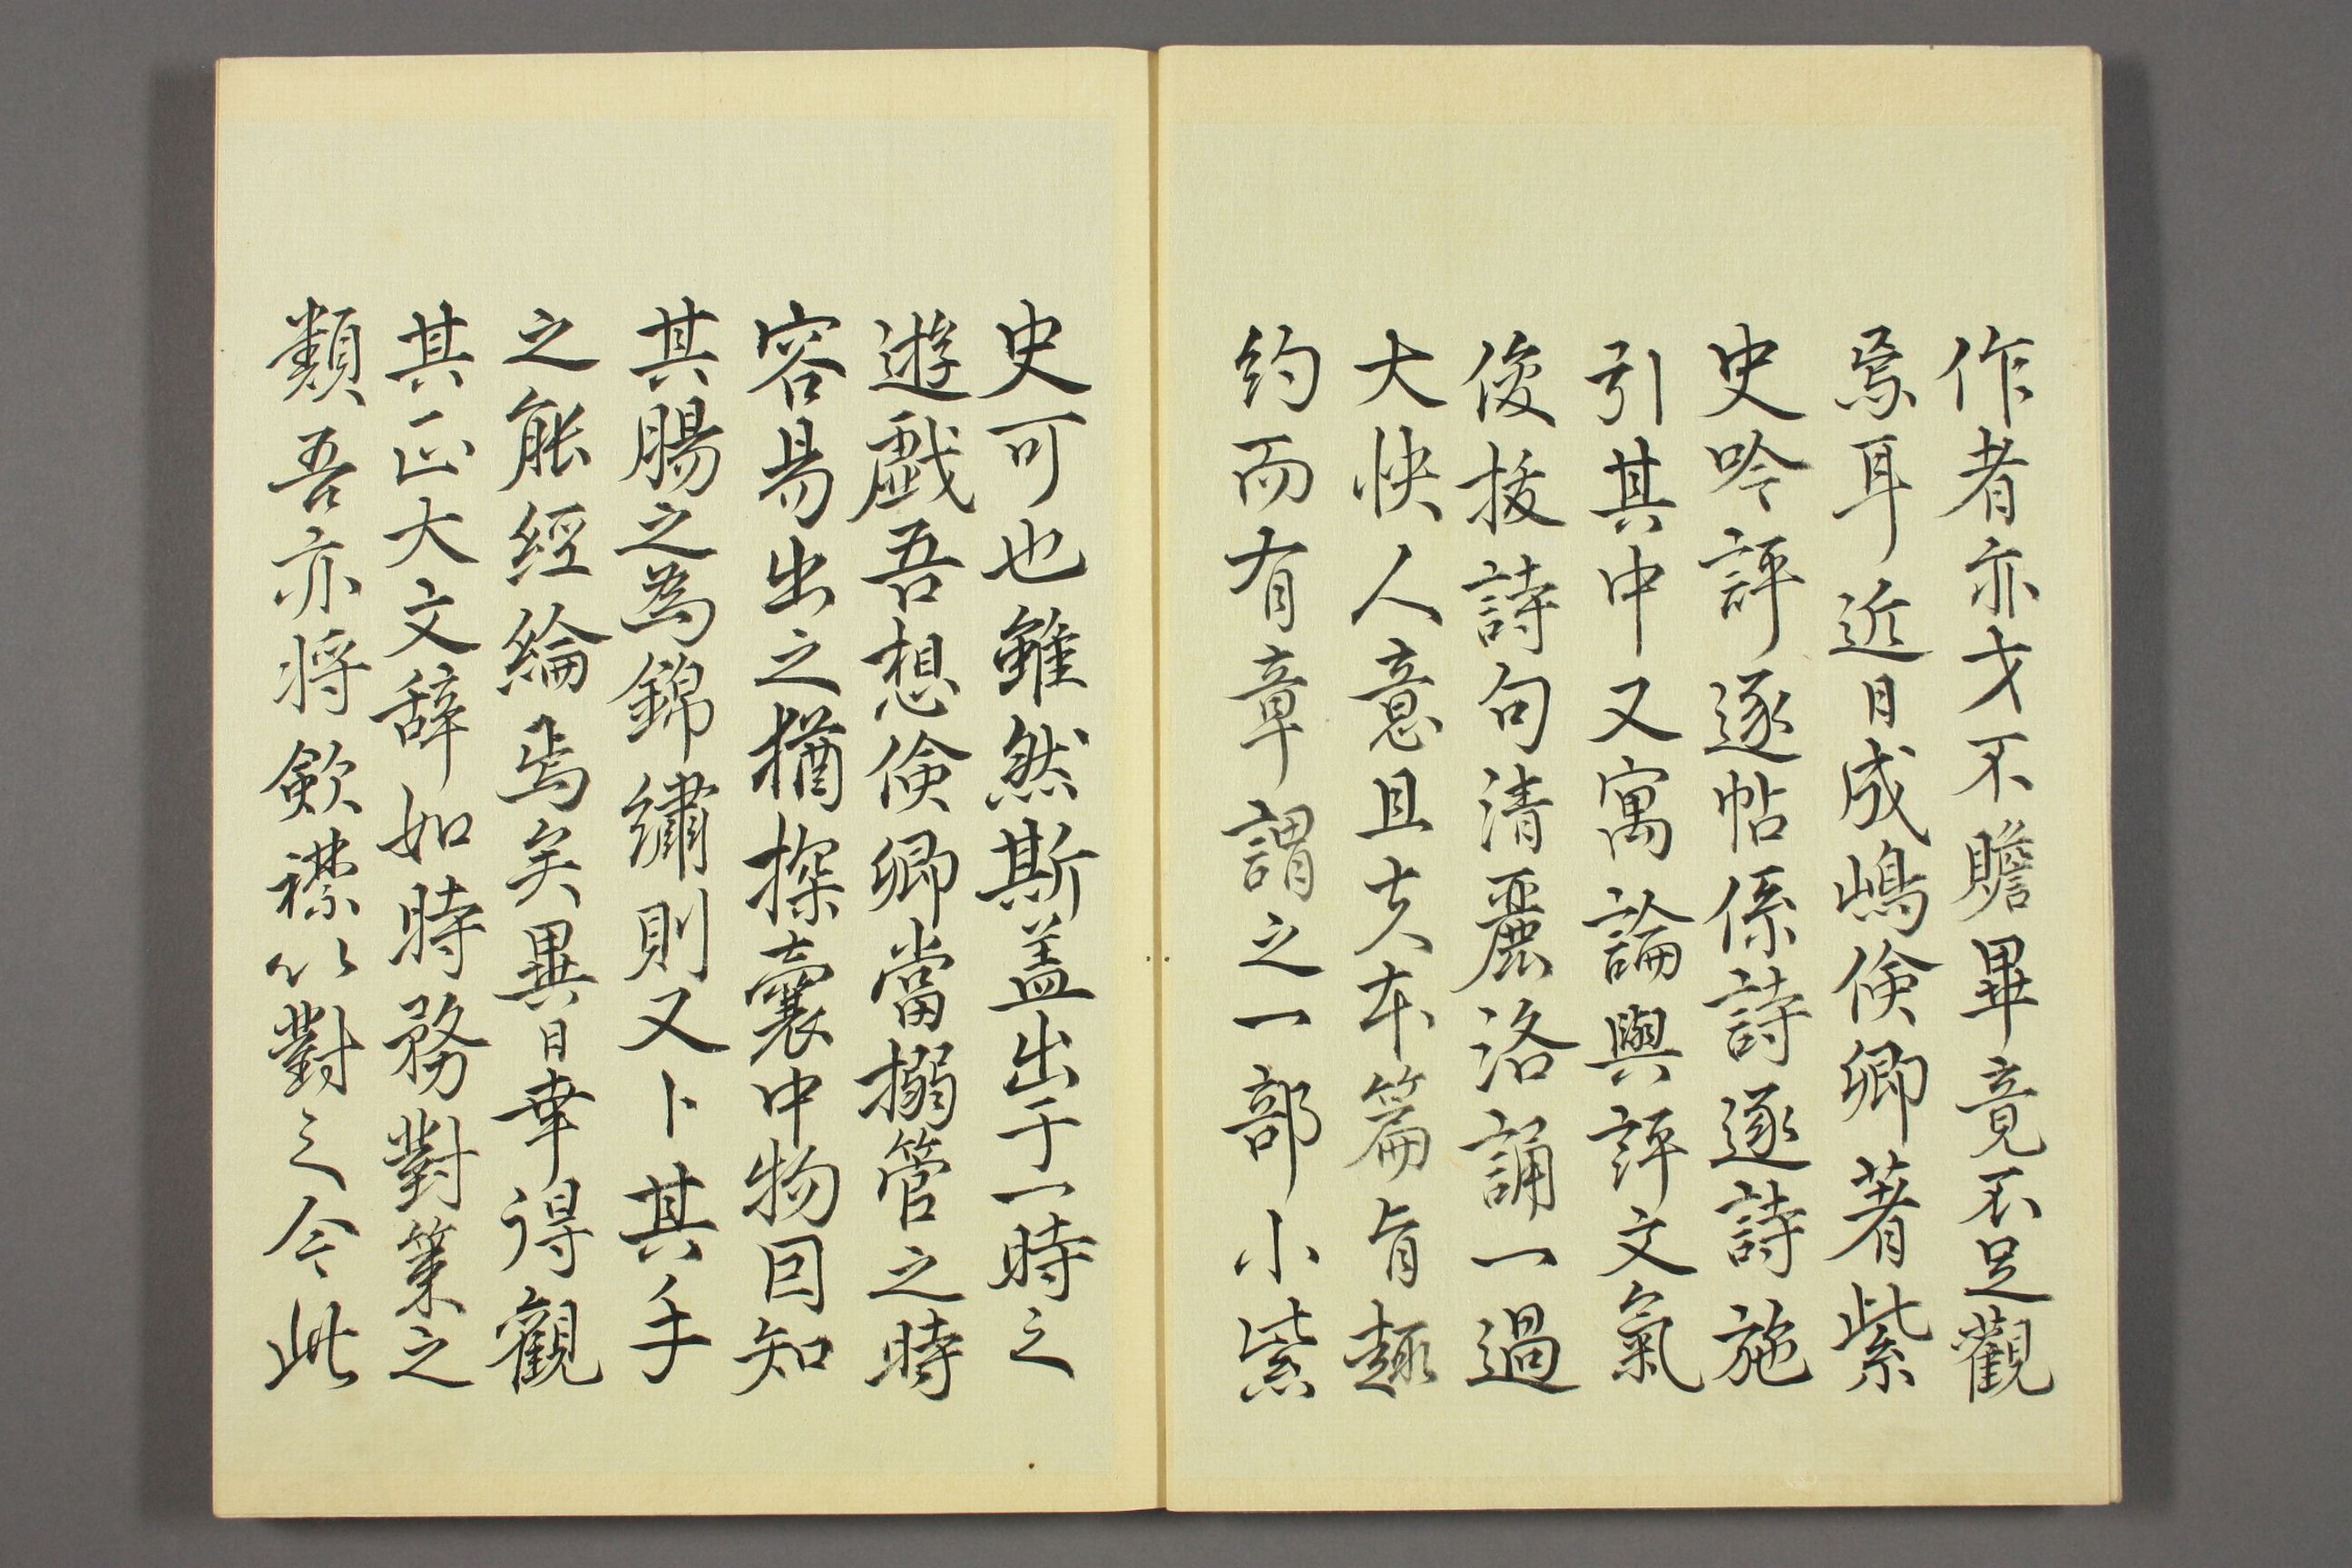 作者亦才不贍畢竟不足觀
焉耳近日成嶋儉卿著紫
史吟評逐帖係詩逐詩施
引其中又寓論與評文氣
俊拔詩句清麗洛誦一過
大快人意且夫本篇旨趣
約而有章謂之一部小紫
史可也雖然斯盖出于一時之
遊戯吾想儉卿當搦管之時
容易出之猶探囊中物因知
其腸之為錦繡則又卜其手
之能經綸焉矣異日幸得觀
其正大文辞如時務對策之
類吾亦将歛襟以對之今此